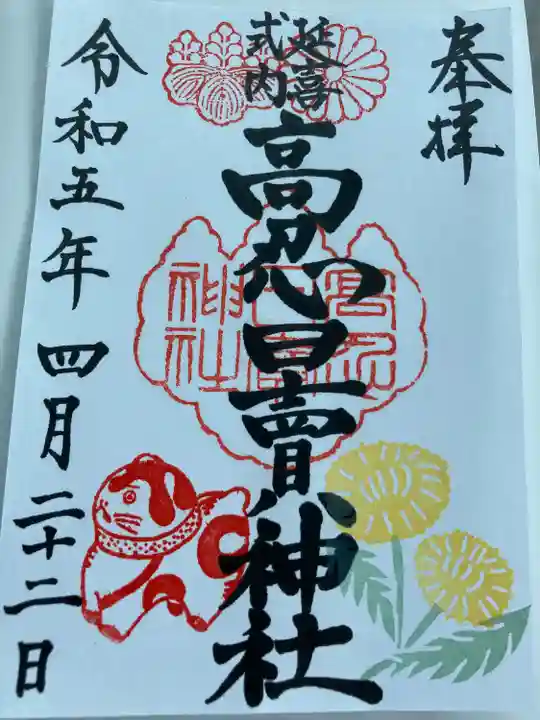 奉拝
延喜
式内
高忍日賣神社
高忍
日賣
神社
令和五年四月二十二日